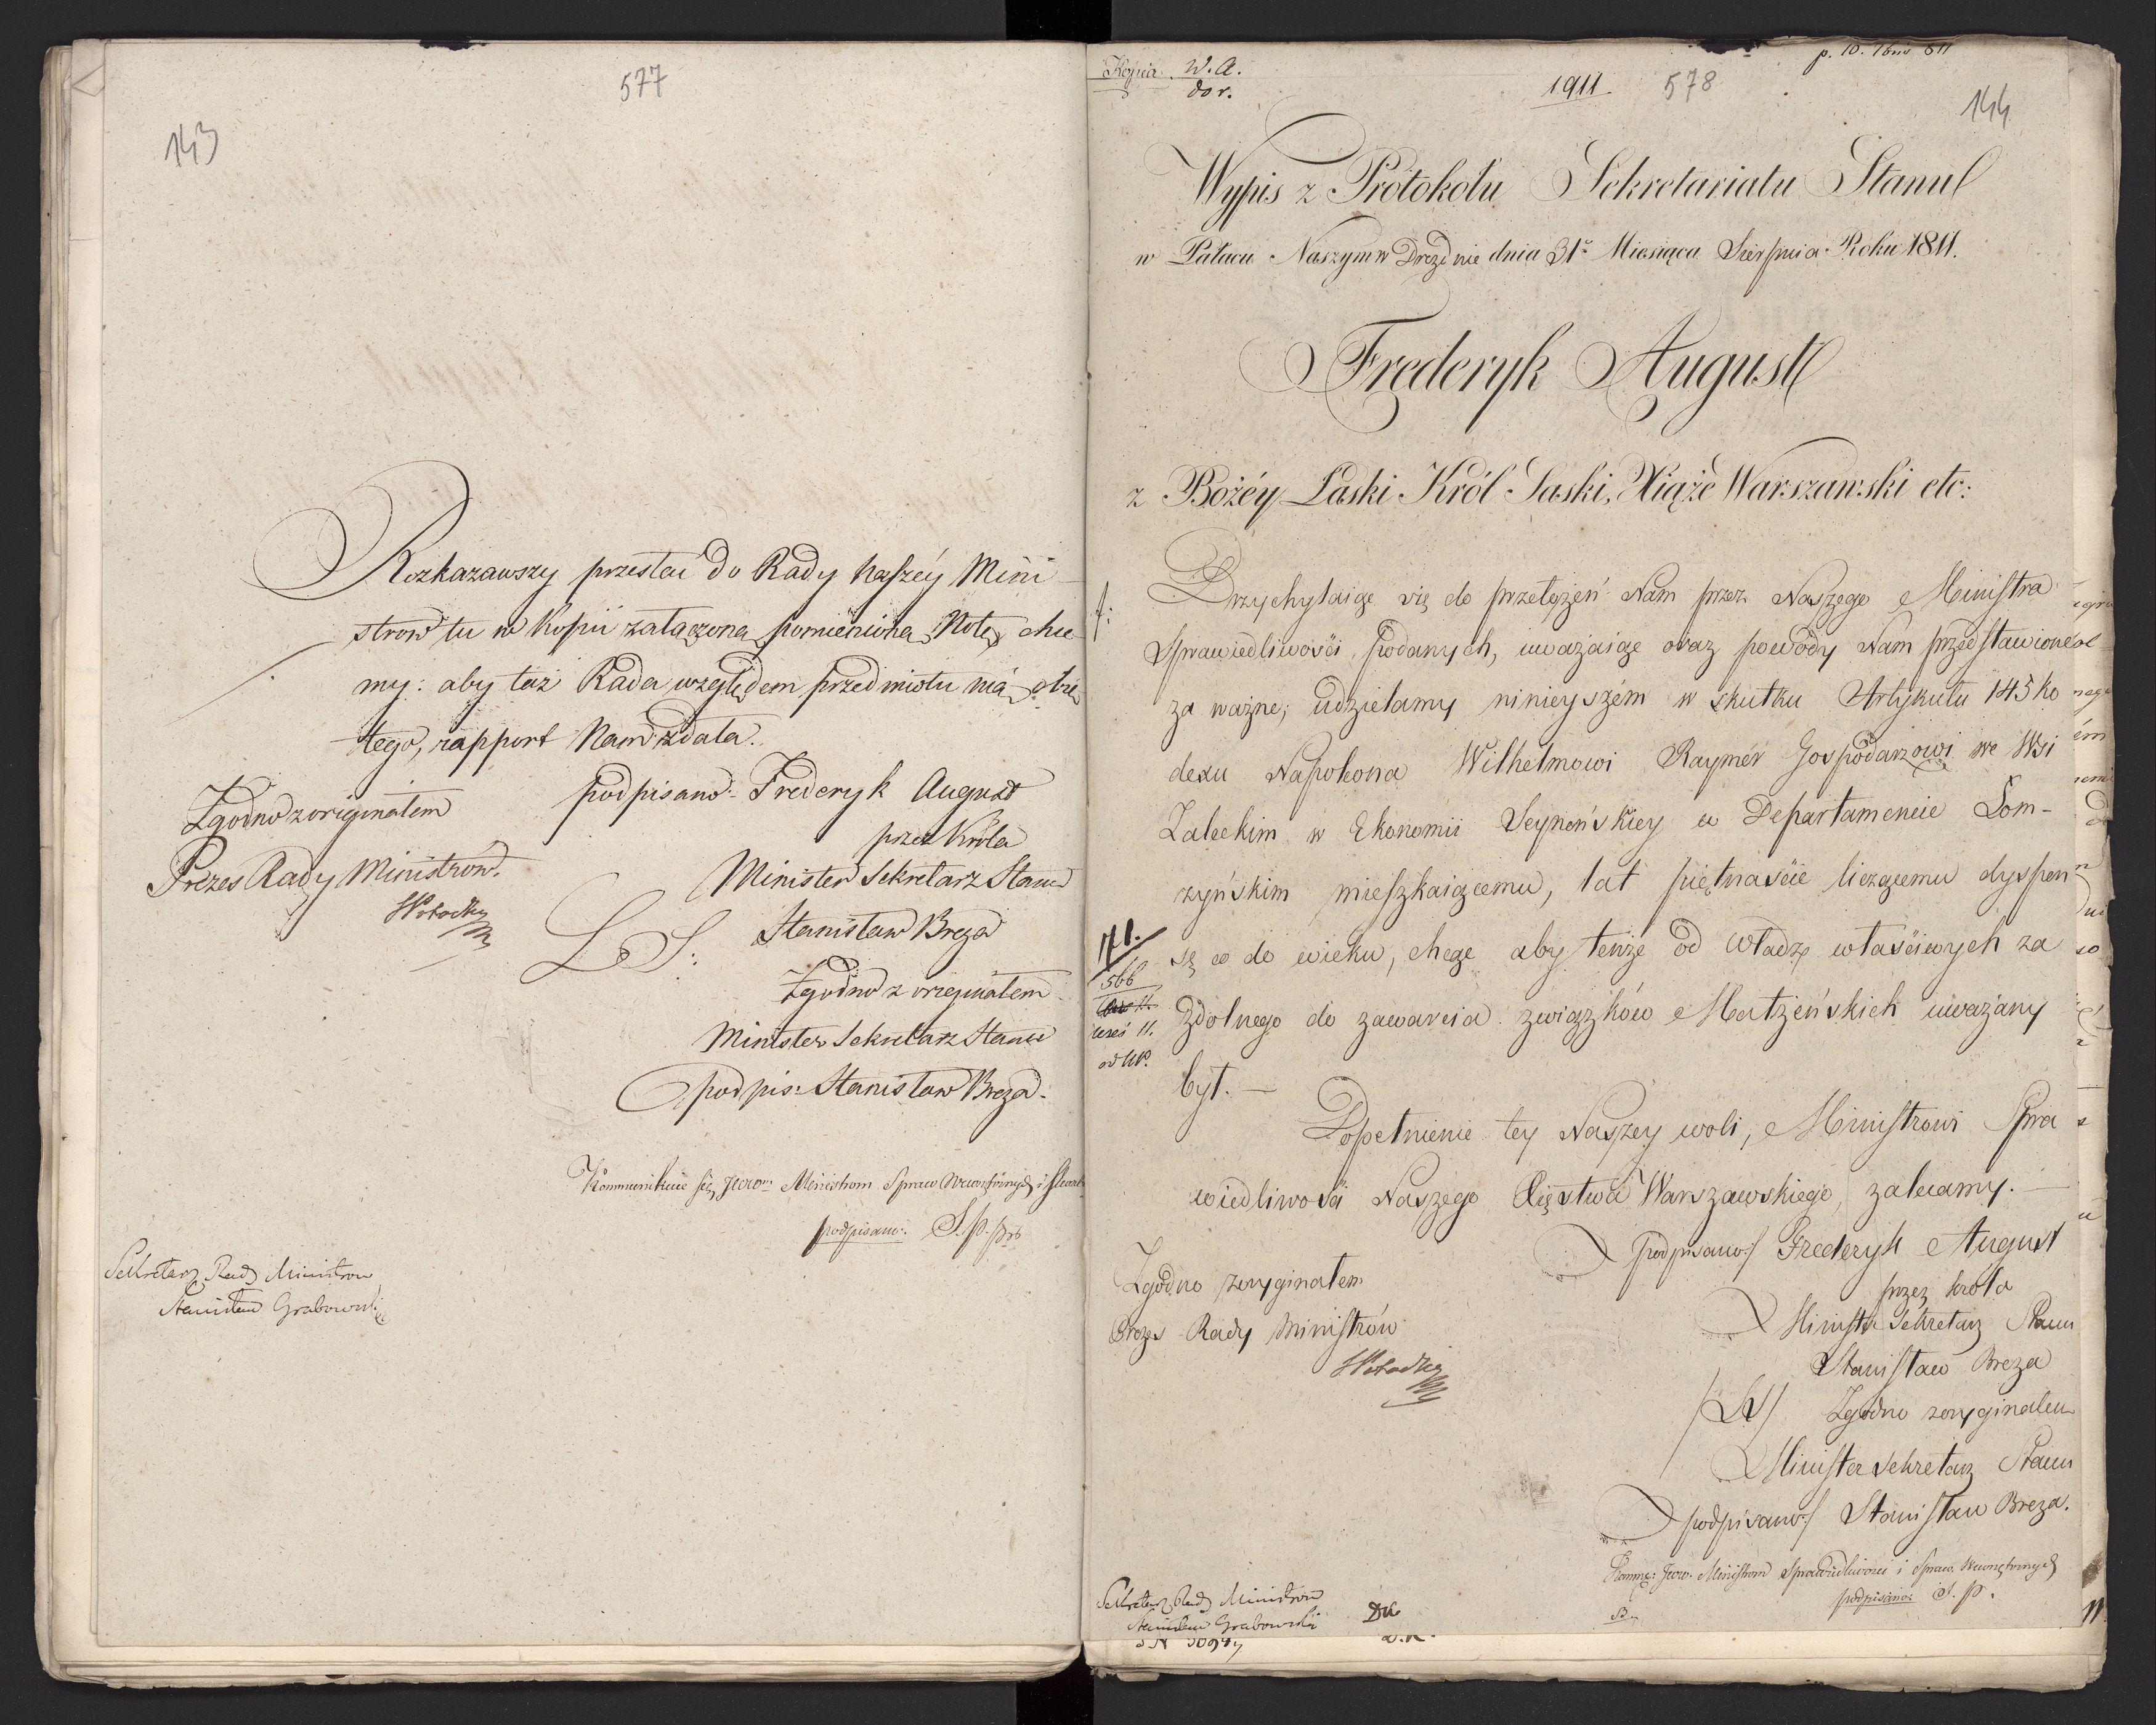 577
143
Rozkazawszy przesłać do Rady Naszéy Mini-
strów tu w kopii załączoną pomienioną Notę, chce-
my: aby taż Rada względem przedmiotu nią obię-
tego, rapport Nam zdała.
podpisano: Frederyk August
przez Króla
Minister Sekretarz Stanu
L. S. Stanisław Breza
Zgodno z originałem
Minister Sekretarz Stanu
podpis: Stanisław Breza.
Zgodno z originałem
Prezes Rady Ministrów.
Kommunikuie się JWW. Ministrom Spraw Wewnętrznych i Skarbu
podpisano: S. P.
Sekretarz Rady Ministrow
Stanisław Grabowski
Kopia W. A.
dor.
1911
578
144
Wypis z Protokołu Sekretariatu Stanu
w Pałacu Naszym w Dreznie dnia 31º Miesiąca Sierpnia Roku 1811.
Frederyk August
z Bożéy Łaski Król Saski, Xiąże Warszawski etc:
Przychylaiąc się do przełożeń Nam przez Naszego Ministra
Sprawiedliwości podanych, uważaiąc oraz powody Nam przedstawione
za ważne, udzielamy ninieyszém w skutku Artykułu 145 Ko
dexu Napoleona Wilhelmowi Raymer Gospodarzowi we Wsi
Zaleckim w Ekonomii Seyneńskiey w Departamencie Łom-
żyńskim mieszkaiącemu, lat piętnaście liczącemu dyspen
sę co do wieku, chcąc aby tenże od Władz właściwych za
Zdolnego do zawarcia związków Małżeńskich uważany
był. —
Dopełnienie tey Naszey woli, Ministrowi Spra
wiedliwości Naszego Xięstwa Warszawskiego, zalecamy. —
podpisano/ Frederyk August
przez Króla
Minister Sekretarz Stanu
Stanisław Breza
/LS/ Zgodno z oryginałem
Minister Sekretarz Stanu
podpisano/ Stanisław Breza.
Zgodno z oryginałem
Prezes Rady Ministrów
Komm: JWW. Ministrom Sprawiedliwości i Spraw Wewnętrznych
podpisano: S. P.
Sekretarz Rady Ministrow
Stanisław Grabowski
171.
566